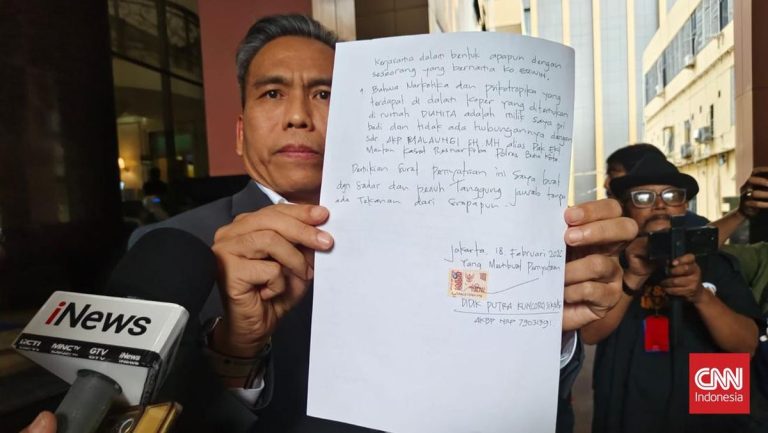 Kerjasama dalam bentuk apapun dengan
seseorang yang bernama Ko ERWIN.
Bahwa Narkotika dan psikotropika yang
terdapat di dalam Koper yang ditemukan
di rumah DIANITA adalah milik saya pri
badi dan tidak ada hubungannya dengan
sdr AKP MALAUNGI SH, MH alias Pak
Mantan Kasat Resnarkoba Polres Bima Kota
Demikian Surat Pernyataan ini Saya buat
dgn Sadar dan penuh Tanggung jawab tanpa
ada Tekanan dari Siapapun.
Jakarta, 18 Februari
Yang Membuat Pernyataan
DIDIK PUTRA KUNCORO
AKBP NRP 79031991
iNews
RCTI MNCTV GTV iNews
CNN
Indonesia